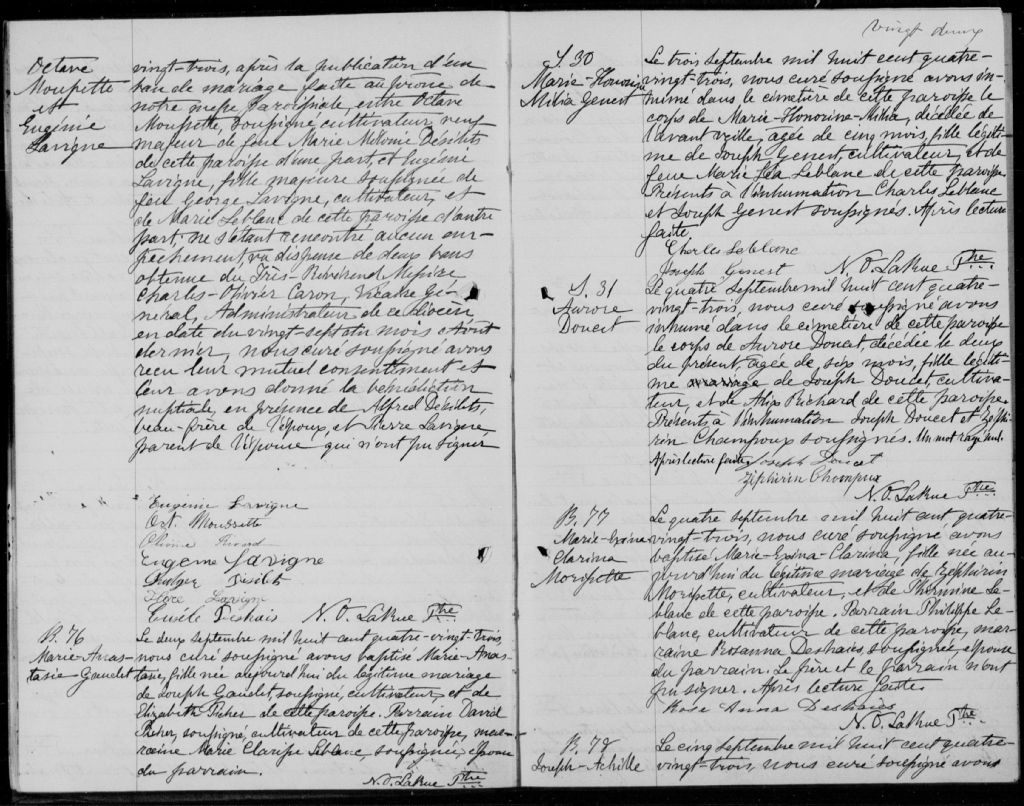 Octave
Moussette
et
Eugénie
Lavigne
vingt-trois, après la publication d'un
ban de mariage faite au prône de
notre messe paroissiale, entre Octave
Moussette, soussigné cultivateur, veuf
majeur de feue Marie Mélonie Désilets
de cette paroisse d'une part, et Eugénie
Lavigne, fille majeure soussignée de
feu George Lavigne, cultivateur, et
de Marie Leblanc de cette paroisse d'autre
part, ne s'étant rencontré aucun em-
pêchement, vu dispense de deux bans
obtenue du Très-Révérend Messire
Charles-Olivier Caron, Vicaire Gé-
néral, Administrateur de ce diocèse
en date du vingt-sept du mois d'Août
dernier, nous curé soussigné avons
reçu leur mutuel consentement et
leur avons donné la bénédiction
nuptiale, en présence de Alfred Désilets,
beau-frère de l'époux, et Pierre Lavigne
parent de l'épouse qui n'ont pu signer
Eugénie Lavigne
Oct. Moussette
Eugene Lavigne
Désilets
Lavigne
Deshais N. O. LaRue Ptre
B. 76
Marie-Anas-
tasie-Gaudet
Le deux septembre mil huit cent quatre-vingt-trois,
nous curé soussigné avons baptisé Marie-Anas-
tasie, fille née aujourd'hui du légitime mariage
de Joseph Gaudet, soussigné, cultivateur, et de
Elizabeth Picher de cette paroisse. Parrain David
Picher, soussigné, cultivateur de cette paroisse, mar-
raine Marie Clarisse Leblanc, soussignée, épouse
du parrain.
N. O. LaRue Ptre
vingt deux
S. 30
Marie-Honorine
Mélia Genest
Le trois septembre mil huit cent quatre-
vingt-trois, nous curé soussigné avons in-
humé dans le cimetière de cette paroisse le
corps de Marie-Honorine-Mélia, décédée de
l'avant veille, agée de cinq mois, fille légiti-
me de Joseph Genest, cultivateur, et de
feue Marie Léa Leblanc de cette paroisse
Présents à l'inhumation Charles Leblanc
et Joseph Genest soussignés. Après lecture
faite
Charles Leblanc
Joseph Genest N. O. LaRue Ptre
S. 31
Aurore
Doucet
Le quatre septembre mil huit cent quatre-
vingt-trois, nous curé soussigné avons
inhumé dans le cimetière de cette paroisse
le corps de Aurore Doucet, décédée le deux
du présent, agée de six mois, fille légiti-
me mariage de Joseph Doucet, cultiva-
teur, et de Alix Richard de cette paroisse.
Présents à l'inhumation Joseph Doucet et Zéphi-
rin Champoux soussignés. Un mot rayé nul.
Après lecture faite Joseph Doucet
Ziphirin Champoux
N. O. LaRue Ptre
B. 77
Marie-Exina-
Clarina
Morissette
Le quatre septembre mil huit cent quatre-
vingt-trois, nous curé soussigné avons
baptisé Marie-Exina-Clarina, fille née au-
jourd'hui du légitime mariage de Zéphirin
Morissette, cultivateur, et de Phermine Le-
blanc de cette paroisse. Parrain Philippe Le-
blanc, cultivateur de cette paroisse, mar-
raine Rosanna Deshaies, soussignée, épouse
du parrain. Le père et le parrain n'ont
pu signer. Après lecture faite.
Rose Anna Deshaies
N. O. LaRue Ptre
B. 78
Joseph-Achille
Le cinq septembre mil huit cent quatre-
vingt-trois, nous curé soussigné avons